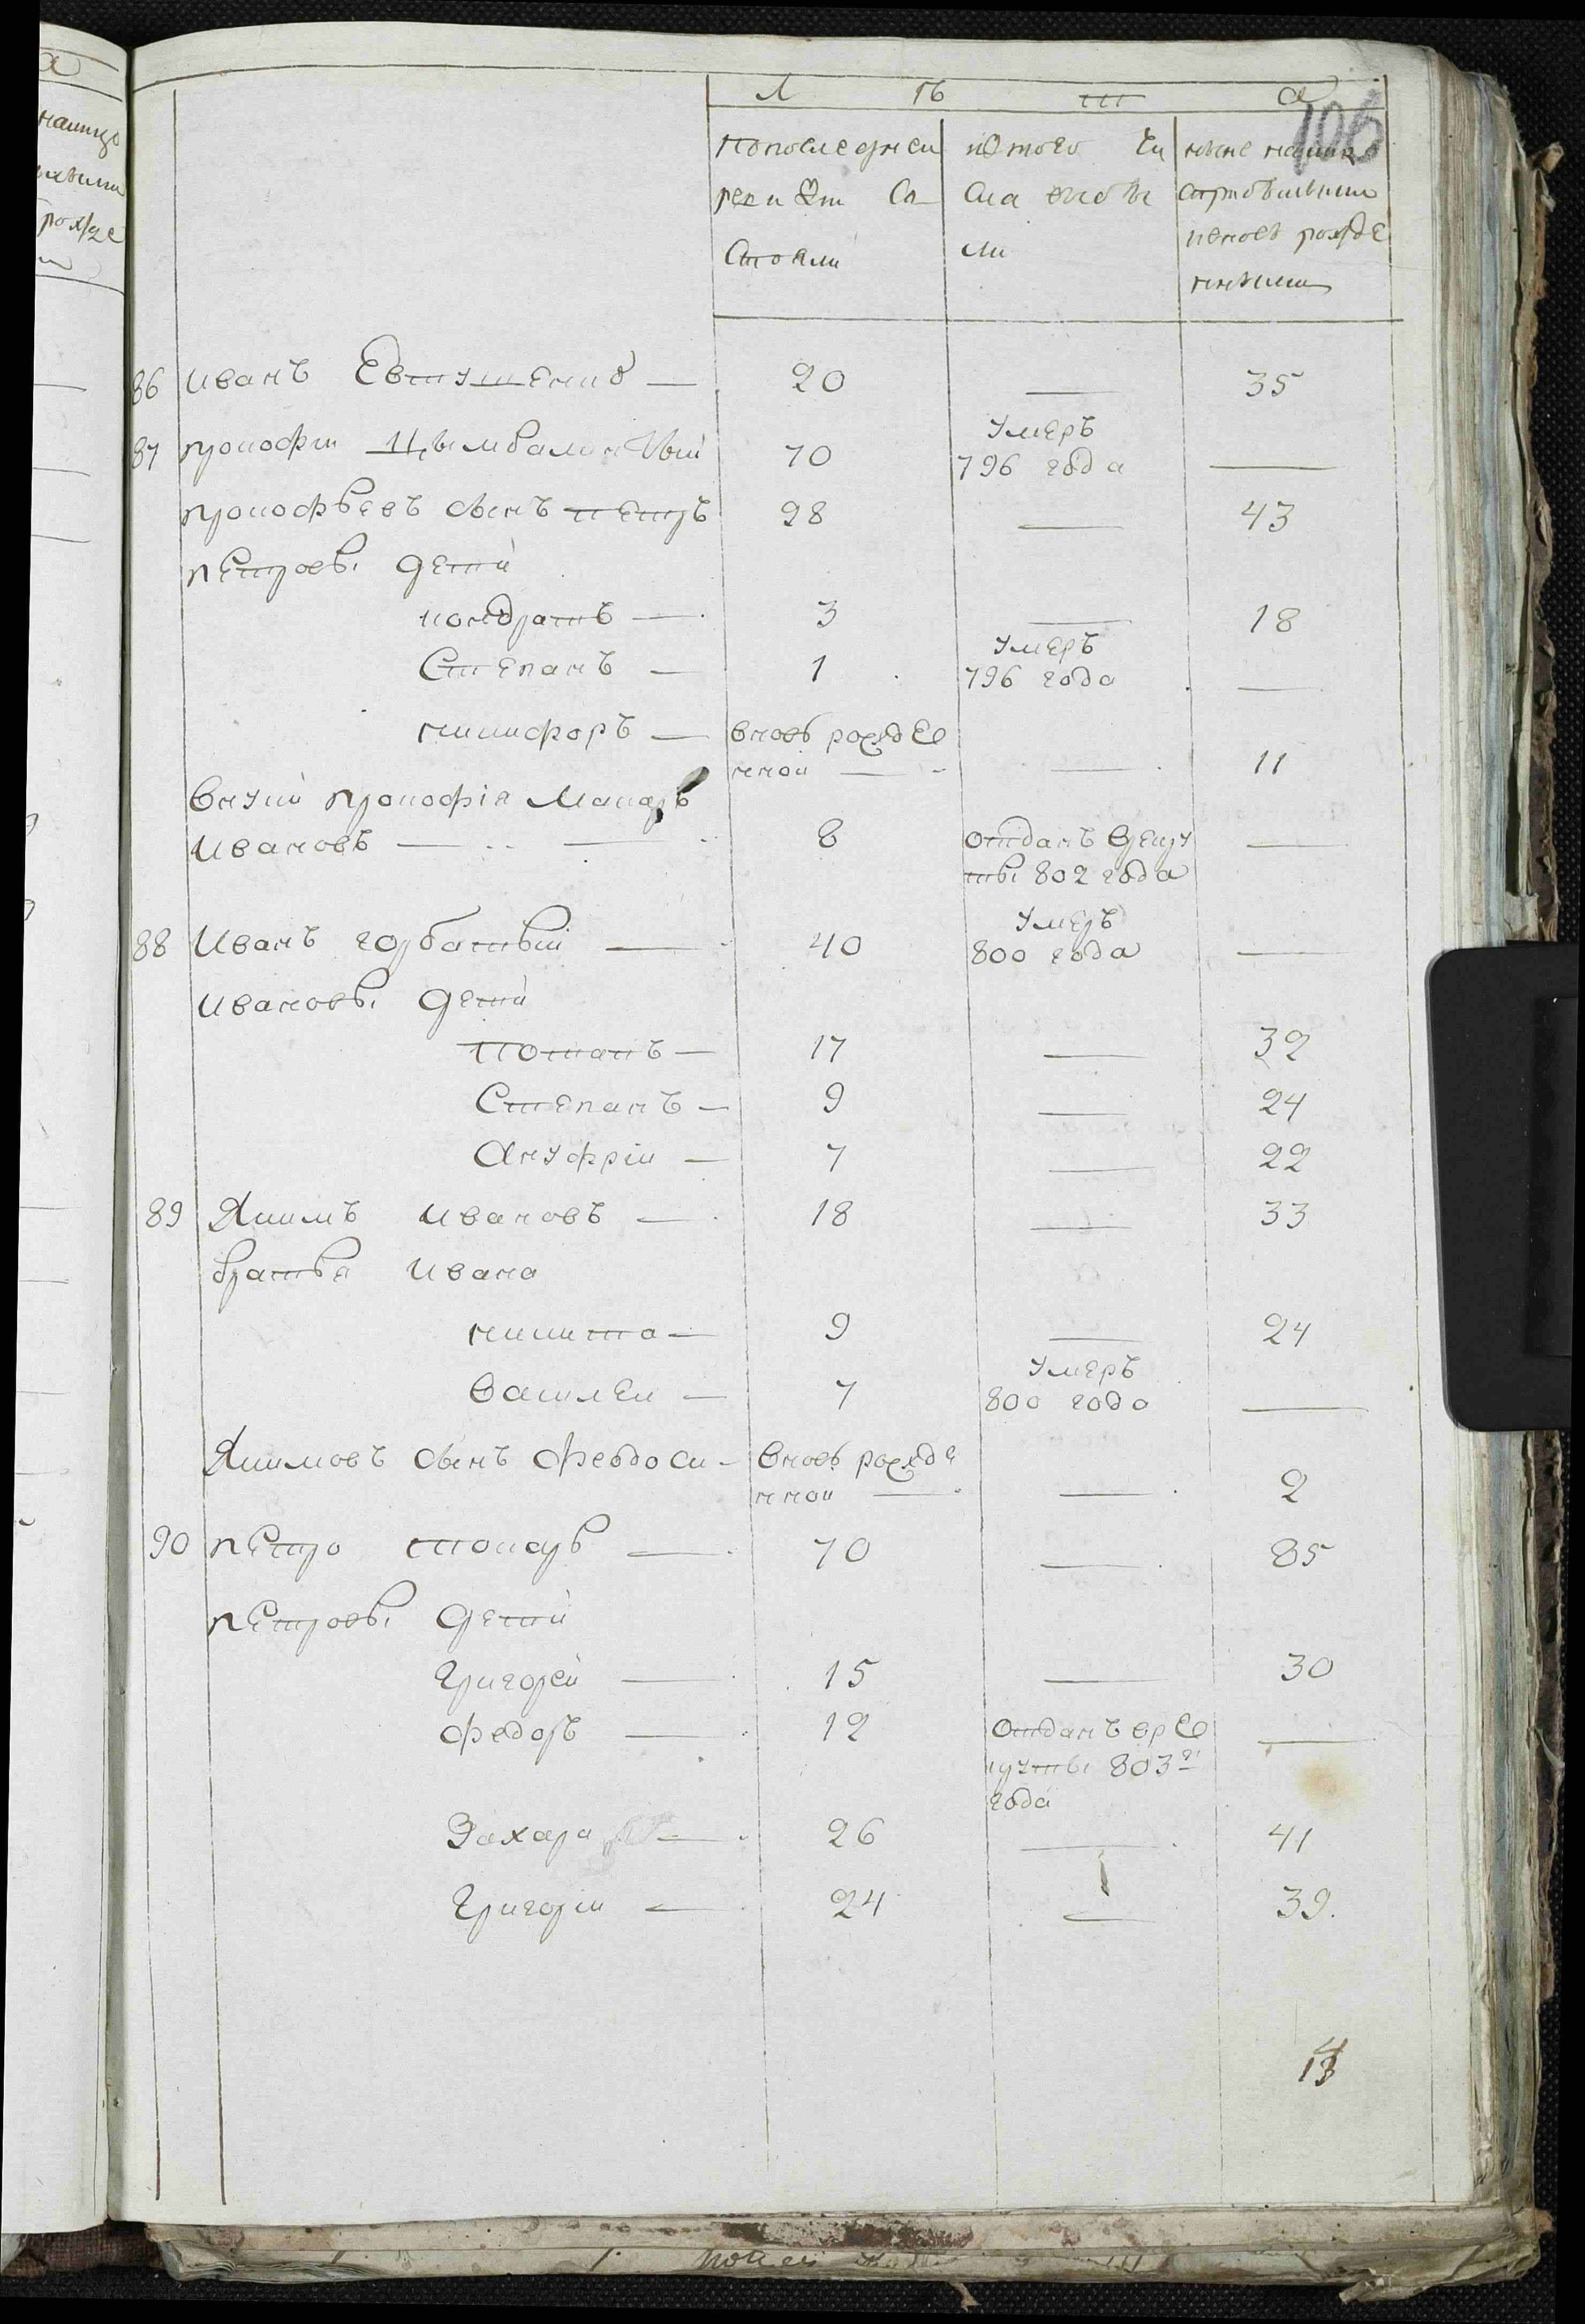 Л ѣ т а
106
По последней ревизіи состояли
ис того числа выбыли
ныне налицо с прибылыми и вновь рожденными
86 Иванъ Евтушенко — 20 — 35
87 Прокофии Цымбалистый 70 Умеръ 796 года —
Прокофьевъ сынъ Петръ 28 — 43
Петровы дети
Кондратъ — 3 — 18
Степанъ — 1 Умеръ 796 года —
Никифоръ — вновь рожденной — — 11
Внуки Прокофія Макаръ
Ивановъ — 8 отданъ врекруты 802 года —
88 Иванъ горбатый — 40 Умеръ 800 года —
Ивановы дети
Потапъ — 17 — 32
Степанъ — 9 — 24
Ануфріи — 7 — 22
89 Якимъ Ивановъ — 18 — 33
братья Ивана
Никита — 9 — 24
Василеи — 7 Умеръ 800 года —
Якимовъ сынъ Феодоси — вновь рожденной — — 2
90 Петро Токарь — 70 — 85
Петровы дети
Григорей — 15 — 30
Федоръ — 12 Отданъ врекруты 803г года —
Захара — 26 — 41
Григоріи — 24 — 39.